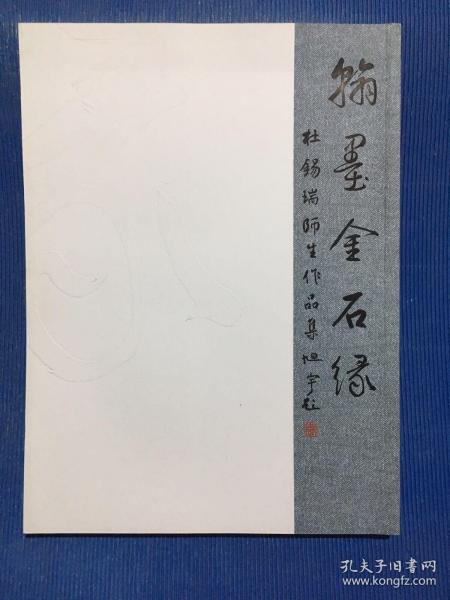 翰墨金石缘
杜锡瑞师生作品集 旭宇题
孔夫子旧书网
www.kongfz.com